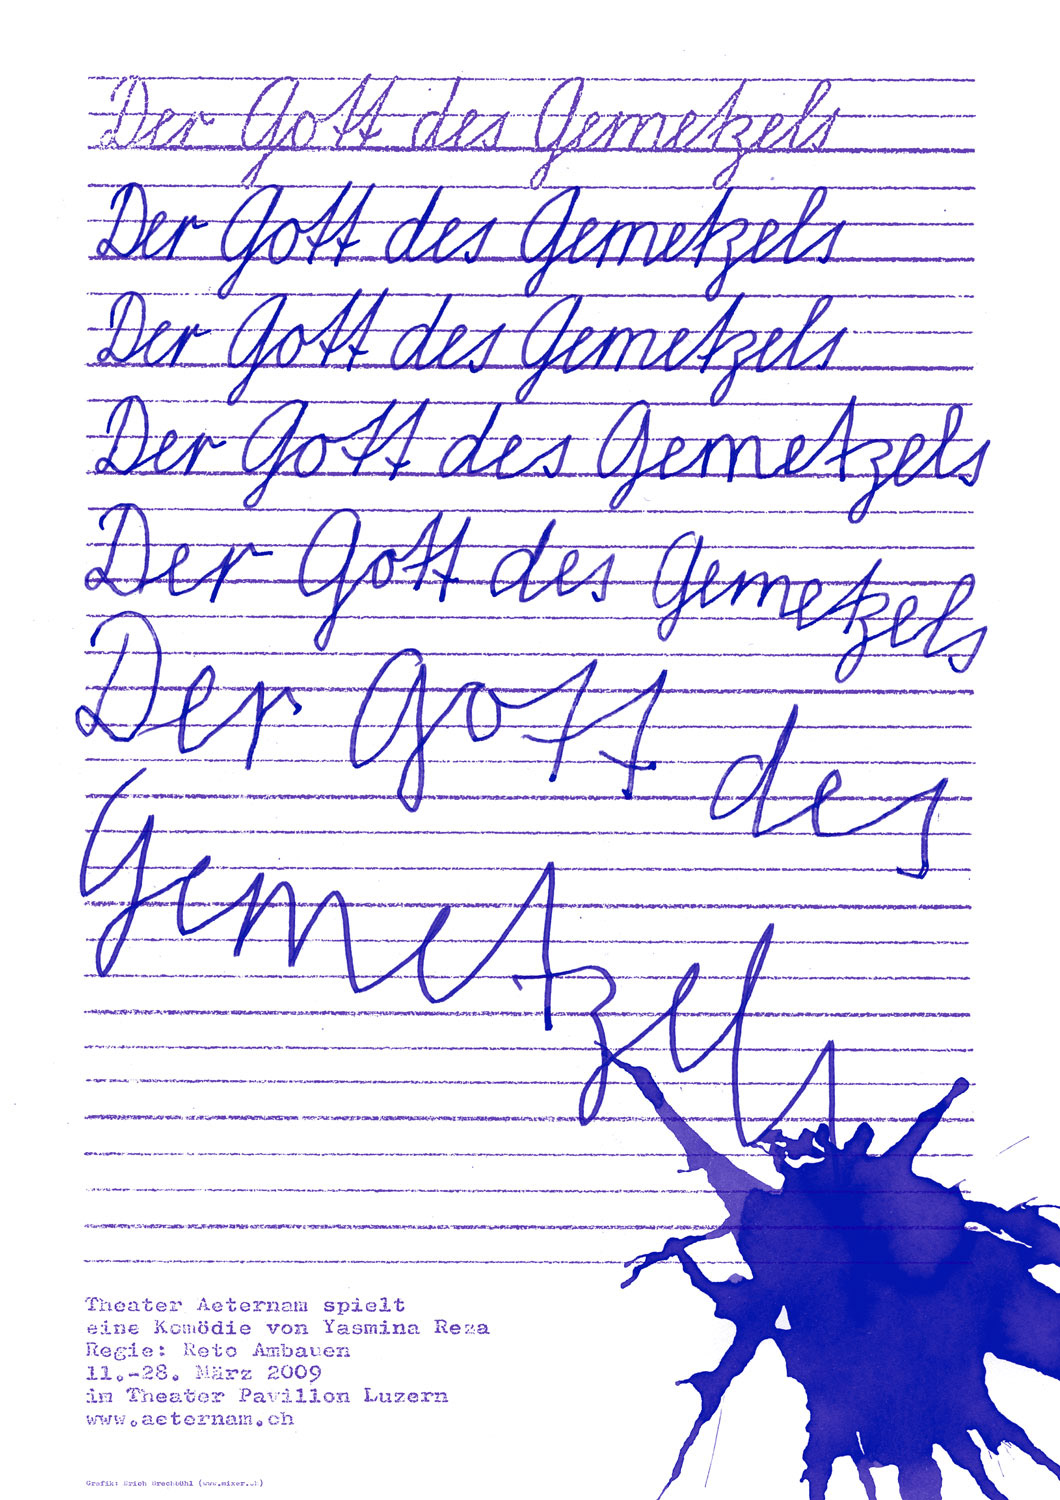 Der Gott des Gemetzels
Der Gott des Gemetzels
Der Gott des Gemetzels
Der Gott des Gemetzels
Der Gott des Gemetzels
Der Gott des
Gemetzels
Theater Aeternam spielt
eine Komödie von Yasmina Reza
Regie: Reto Ambauen
11.-28. März 2009
im Theater Pavillon Luzern
www.aeternam.ch
Grafik: Erich Brechbühl (www.mixer.ch)